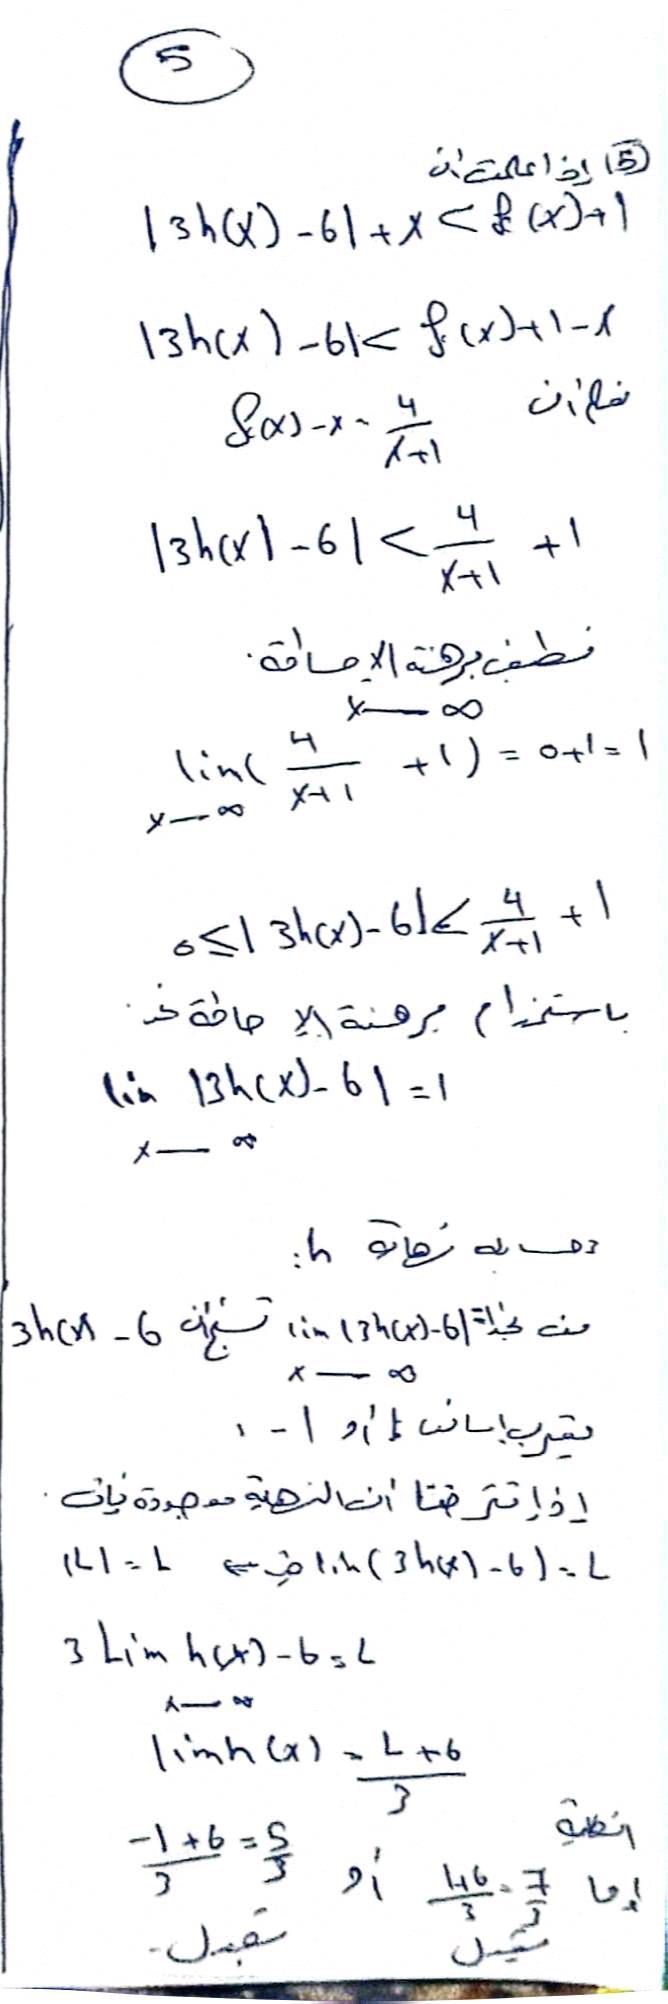 5
(5) إذا علمت أن
|3h(x) - 6| + x < f(x) + 1
|3h(x) - 6| < f(x) + 1 - x
f(x) - x = 4/(x+1) نعلم أن
|3h(x) - 6| < 4/(x+1) + 1
نطبق مبرهنة الإحاطة.
x → ∞
lim( 4/(x+1) + 1) = 0+1 = 1
x → ∞
0 ≤ |3h(x) - 6| < 4/(x+1) + 1
باستخدام مبرهنة الإحاطة
lim |3h(x) - 6| = 1
x → ∞
نهاية h:
من lim |3h(x) - 6| = نستنتج أن 3h(x) - 6
x → ∞
يقترب إما من 1 أو -1
إذا افترضنا أن النهاية موجودة فإن
lim(3h(x) - 6) = L ⇐ |L| = L
3 Lim h(x) - 6 = L
x → ∞
lim h(x) = (L+6)/3
النهاية
إما (1+6)/3 = 7/3 أو (-1+6)/3 = 5/3
تقبل تقبل.